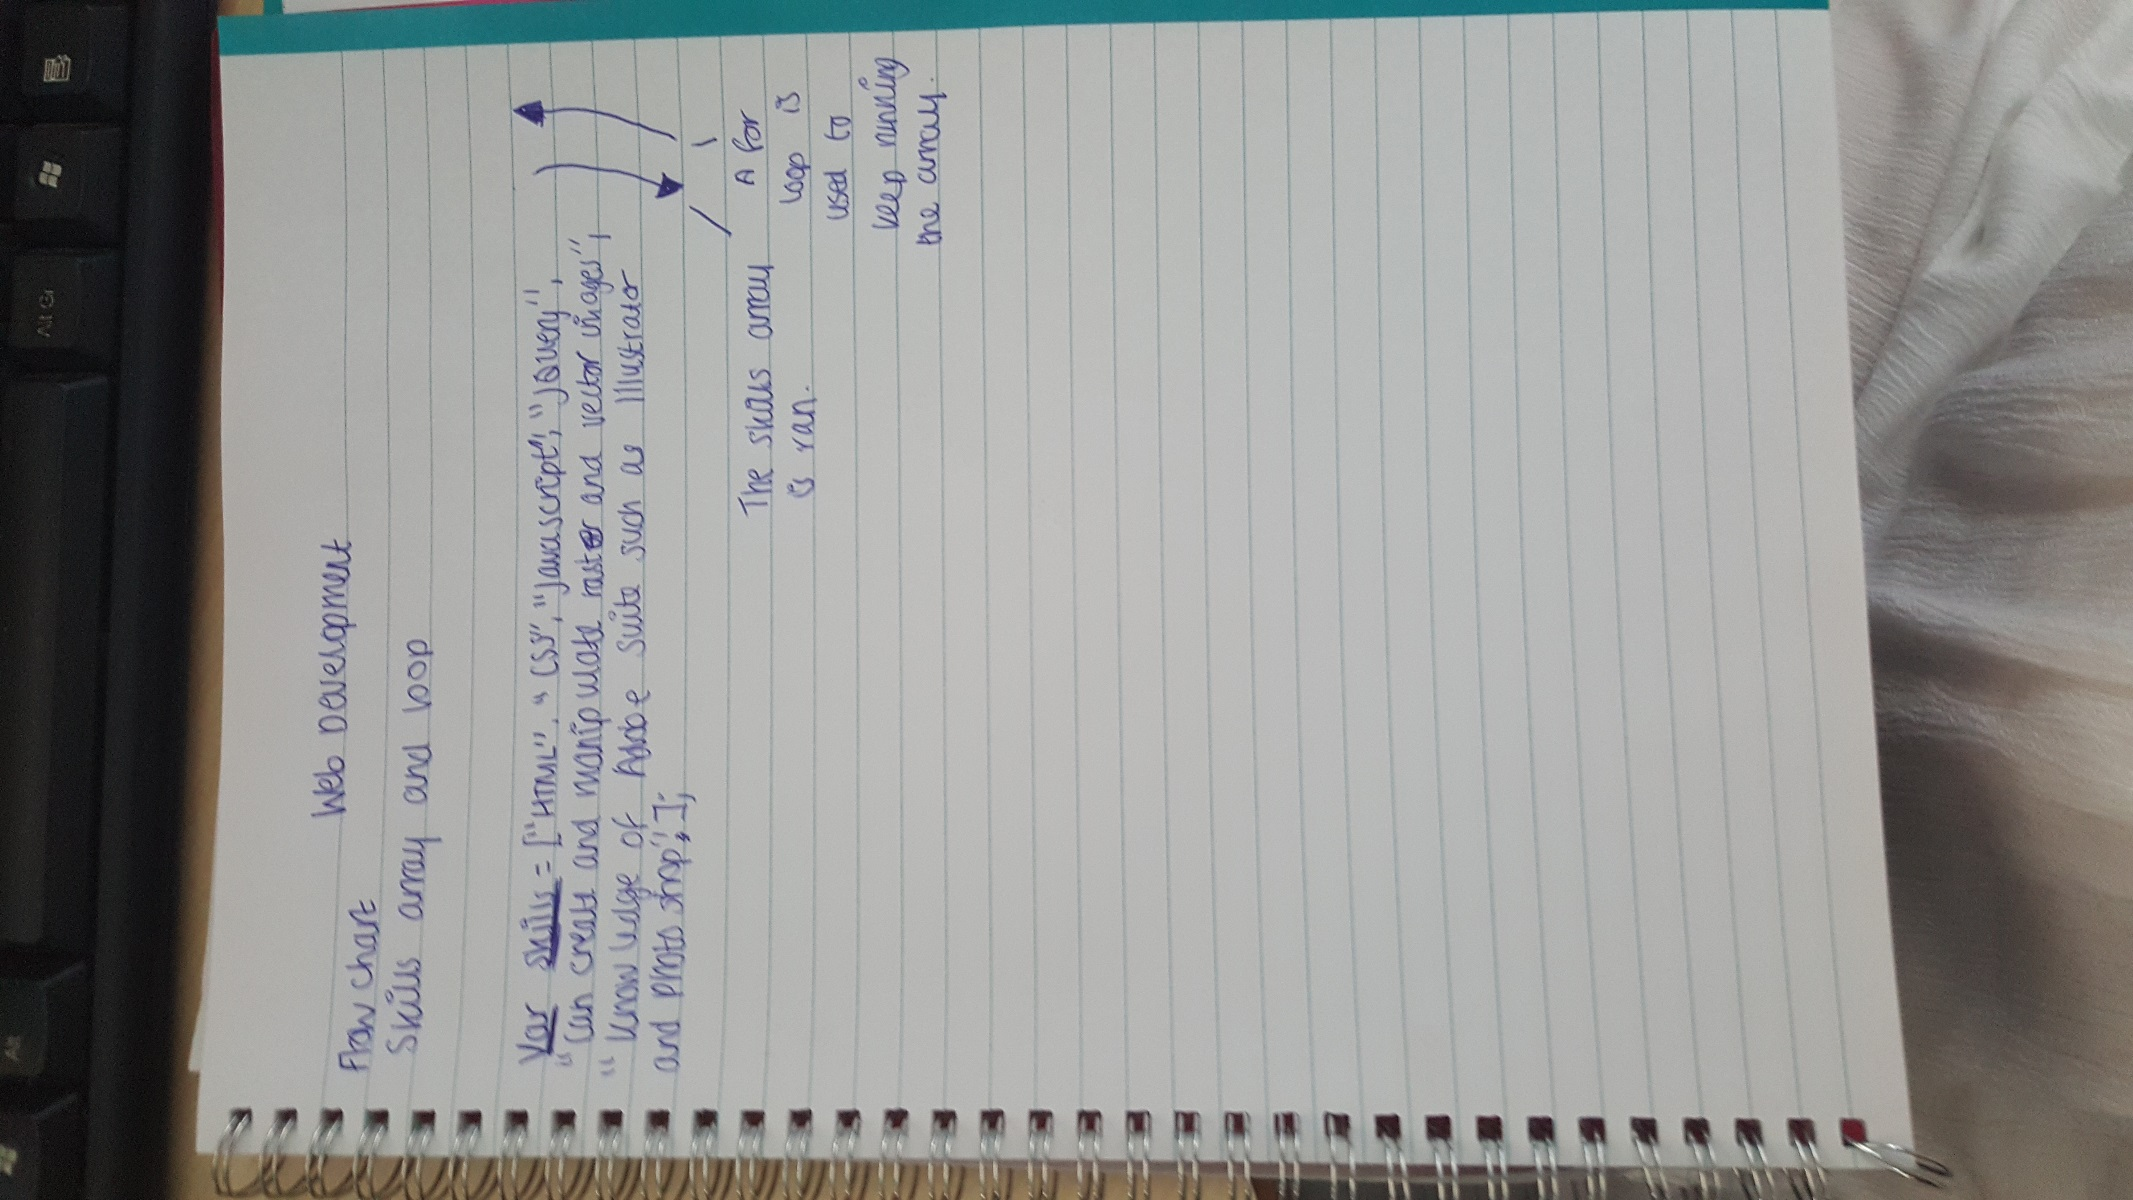 Web Development
Flow chart
Skills array and loop
Var skills = ["HTML", "CSS", "Javascript", "jQuery",
"Can create and manipulate raster and vector images",
"Knowledge of Adobe suite such as Illustrator
and Photoshop",];
The skills array
is ran.
A for
loop is
used to
keep running
the array.
Alt Gr
Alt